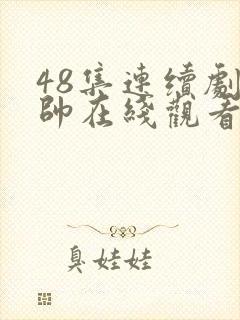 48集連續劇
帥在綫觀看
臭娃娃